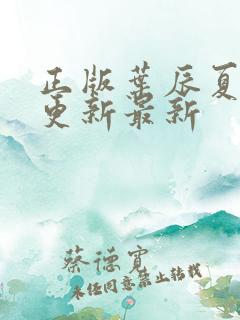 正版叶辰夏
更新最新
蔡德宽
未经同意禁止转载